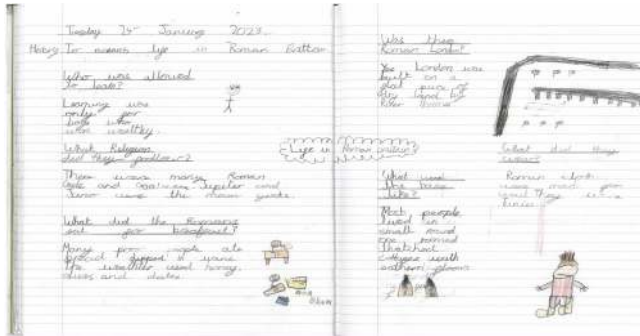 Tuesday 24th January 2023
History To life in Roman Britain
Who was allowed
to learn?
Learning was
only for
boys who
were wealthy.
What Religion
did they
There were many Roman
gods and Jupiter and
Juno were the main gods.
What did the Romans
eat for breakfast?
Many poor people ate
bread dipped in wine
The wealthier used honey,
olives and dates.
Life in Roman
Was there
Roman London?
Yes London was
built on a
flat piece of
dry land by
River
What were
the like?
Most people
lived in
small round
roomed
thatched
with
What did they
wear?
Roman
were made from
wool They
tunics